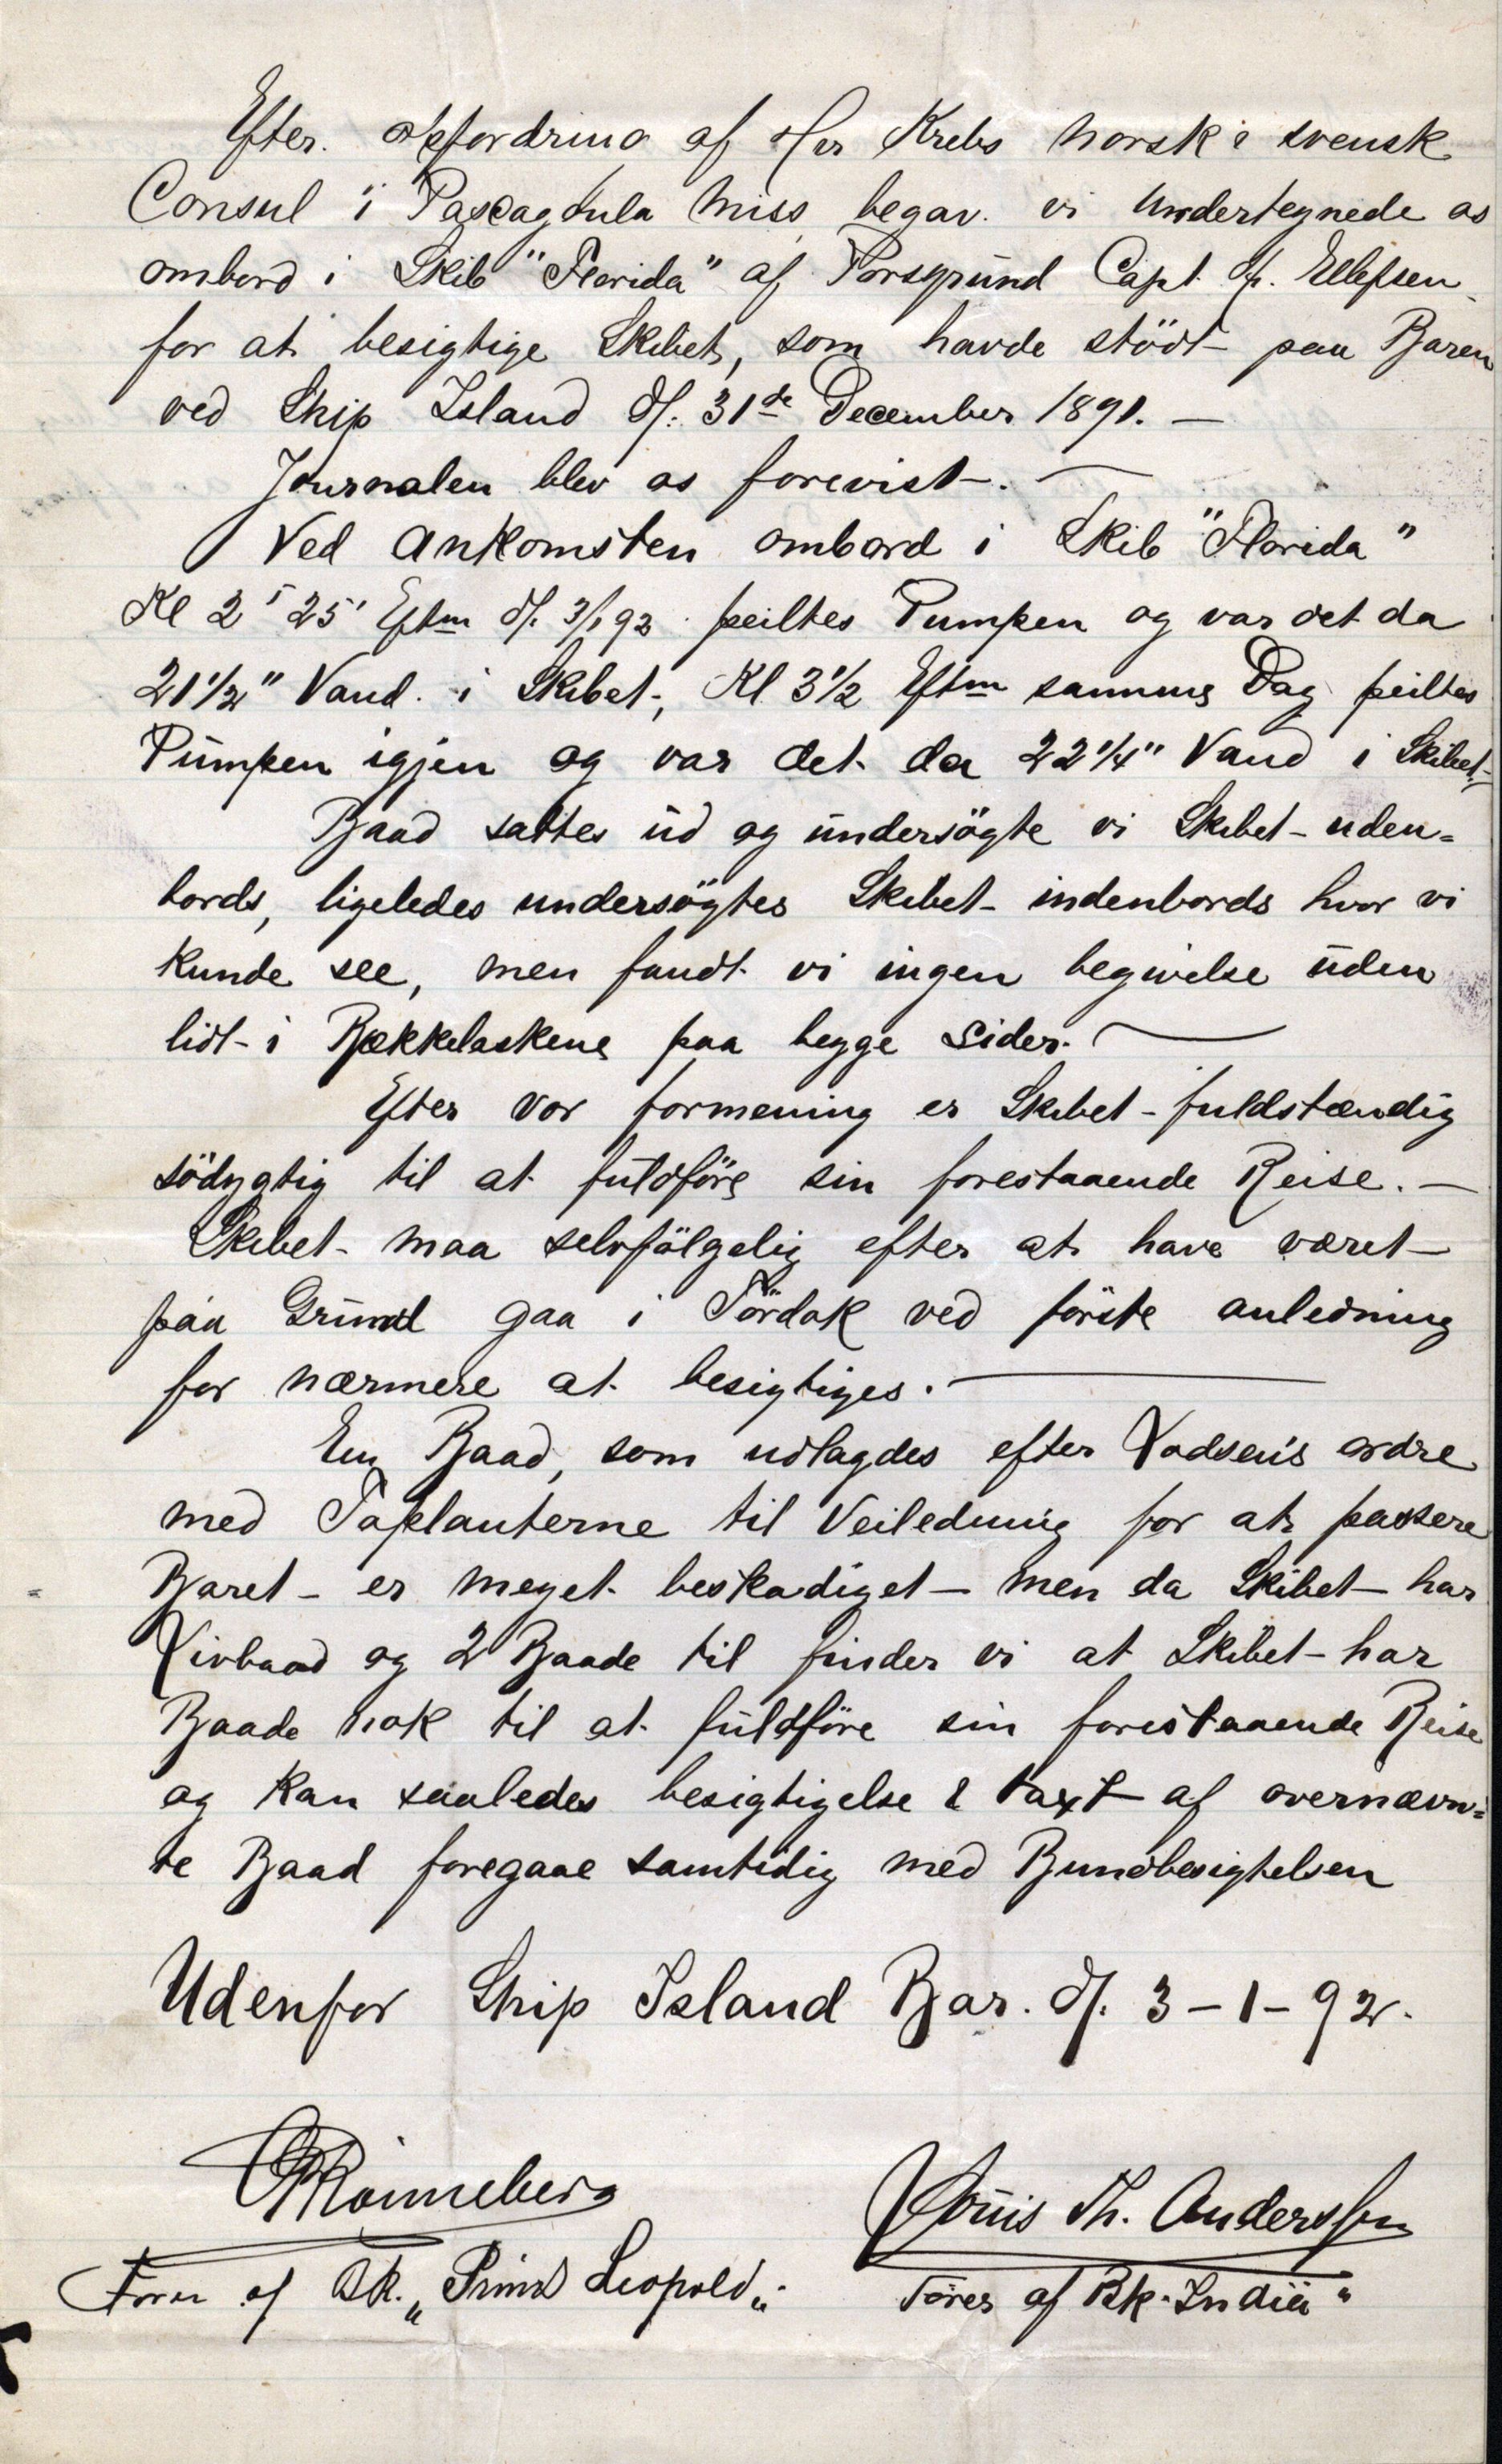 Efter. opfordring af Hr Krebs norsk & svensk
Consul i Pascagoula Miss begav. vi Undertegnede os
ombord i Skib "Florida" af Porsgrund Capt. H. Ellefsen
for at besigtige Skibet, som havde stödt paa Baren
ved Ship Island d/: 31de December 1891. —
Journalen blev os forevist. —
Ved Ankomsten ombord i Skib "Florida"
Kl 2 25' Eftm d/. 3/1 92 peiltes Pumpen og var det da
21 1/2" Vand i Skibet, Kl 3 1/2 Eftm samme Dag peiltes
Pumpen igjen og var det da 22 1/4" Vand i Skibet. —
Baad sattes ud og undersögte vi Skibet uden=
bords, ligeledes undersögtes Skibet indenbords hvor vi
kunde see, men fandt vi ingen begivelse uden
lidt i Rækkelaskene paa begge Sider. —
Efter vor formening er Skibet fuldstændig
södygtig til at fuldföre sin forestaaende Reise. —
Skibet maa selvfölgelig efter at have været
paa Grund gaa i Tördok ved förste anledning
for nærmere at besigtiges. —
En Baad, som udlagdes efter Lodsen's ordre
med Toplanterne til Veiledning for at passere
Baret er meget beskadiget — men da Skibet har
Livbaad og 2 Baade til finder vi at Skibet har
Baade nok til at fuldföre sin forestaaende Reise
og kan saaledes besigtigelse & taxt af overnævn=
te Baad foregaae samtidig med Bundbesigtelsen
Udenfor Ship Island Bar. d/. 3-1-92.
Rönneberg
Louis Th. Anderssen
Förer af Sk. „Prins Leopold„.
Förer af Bk. India"